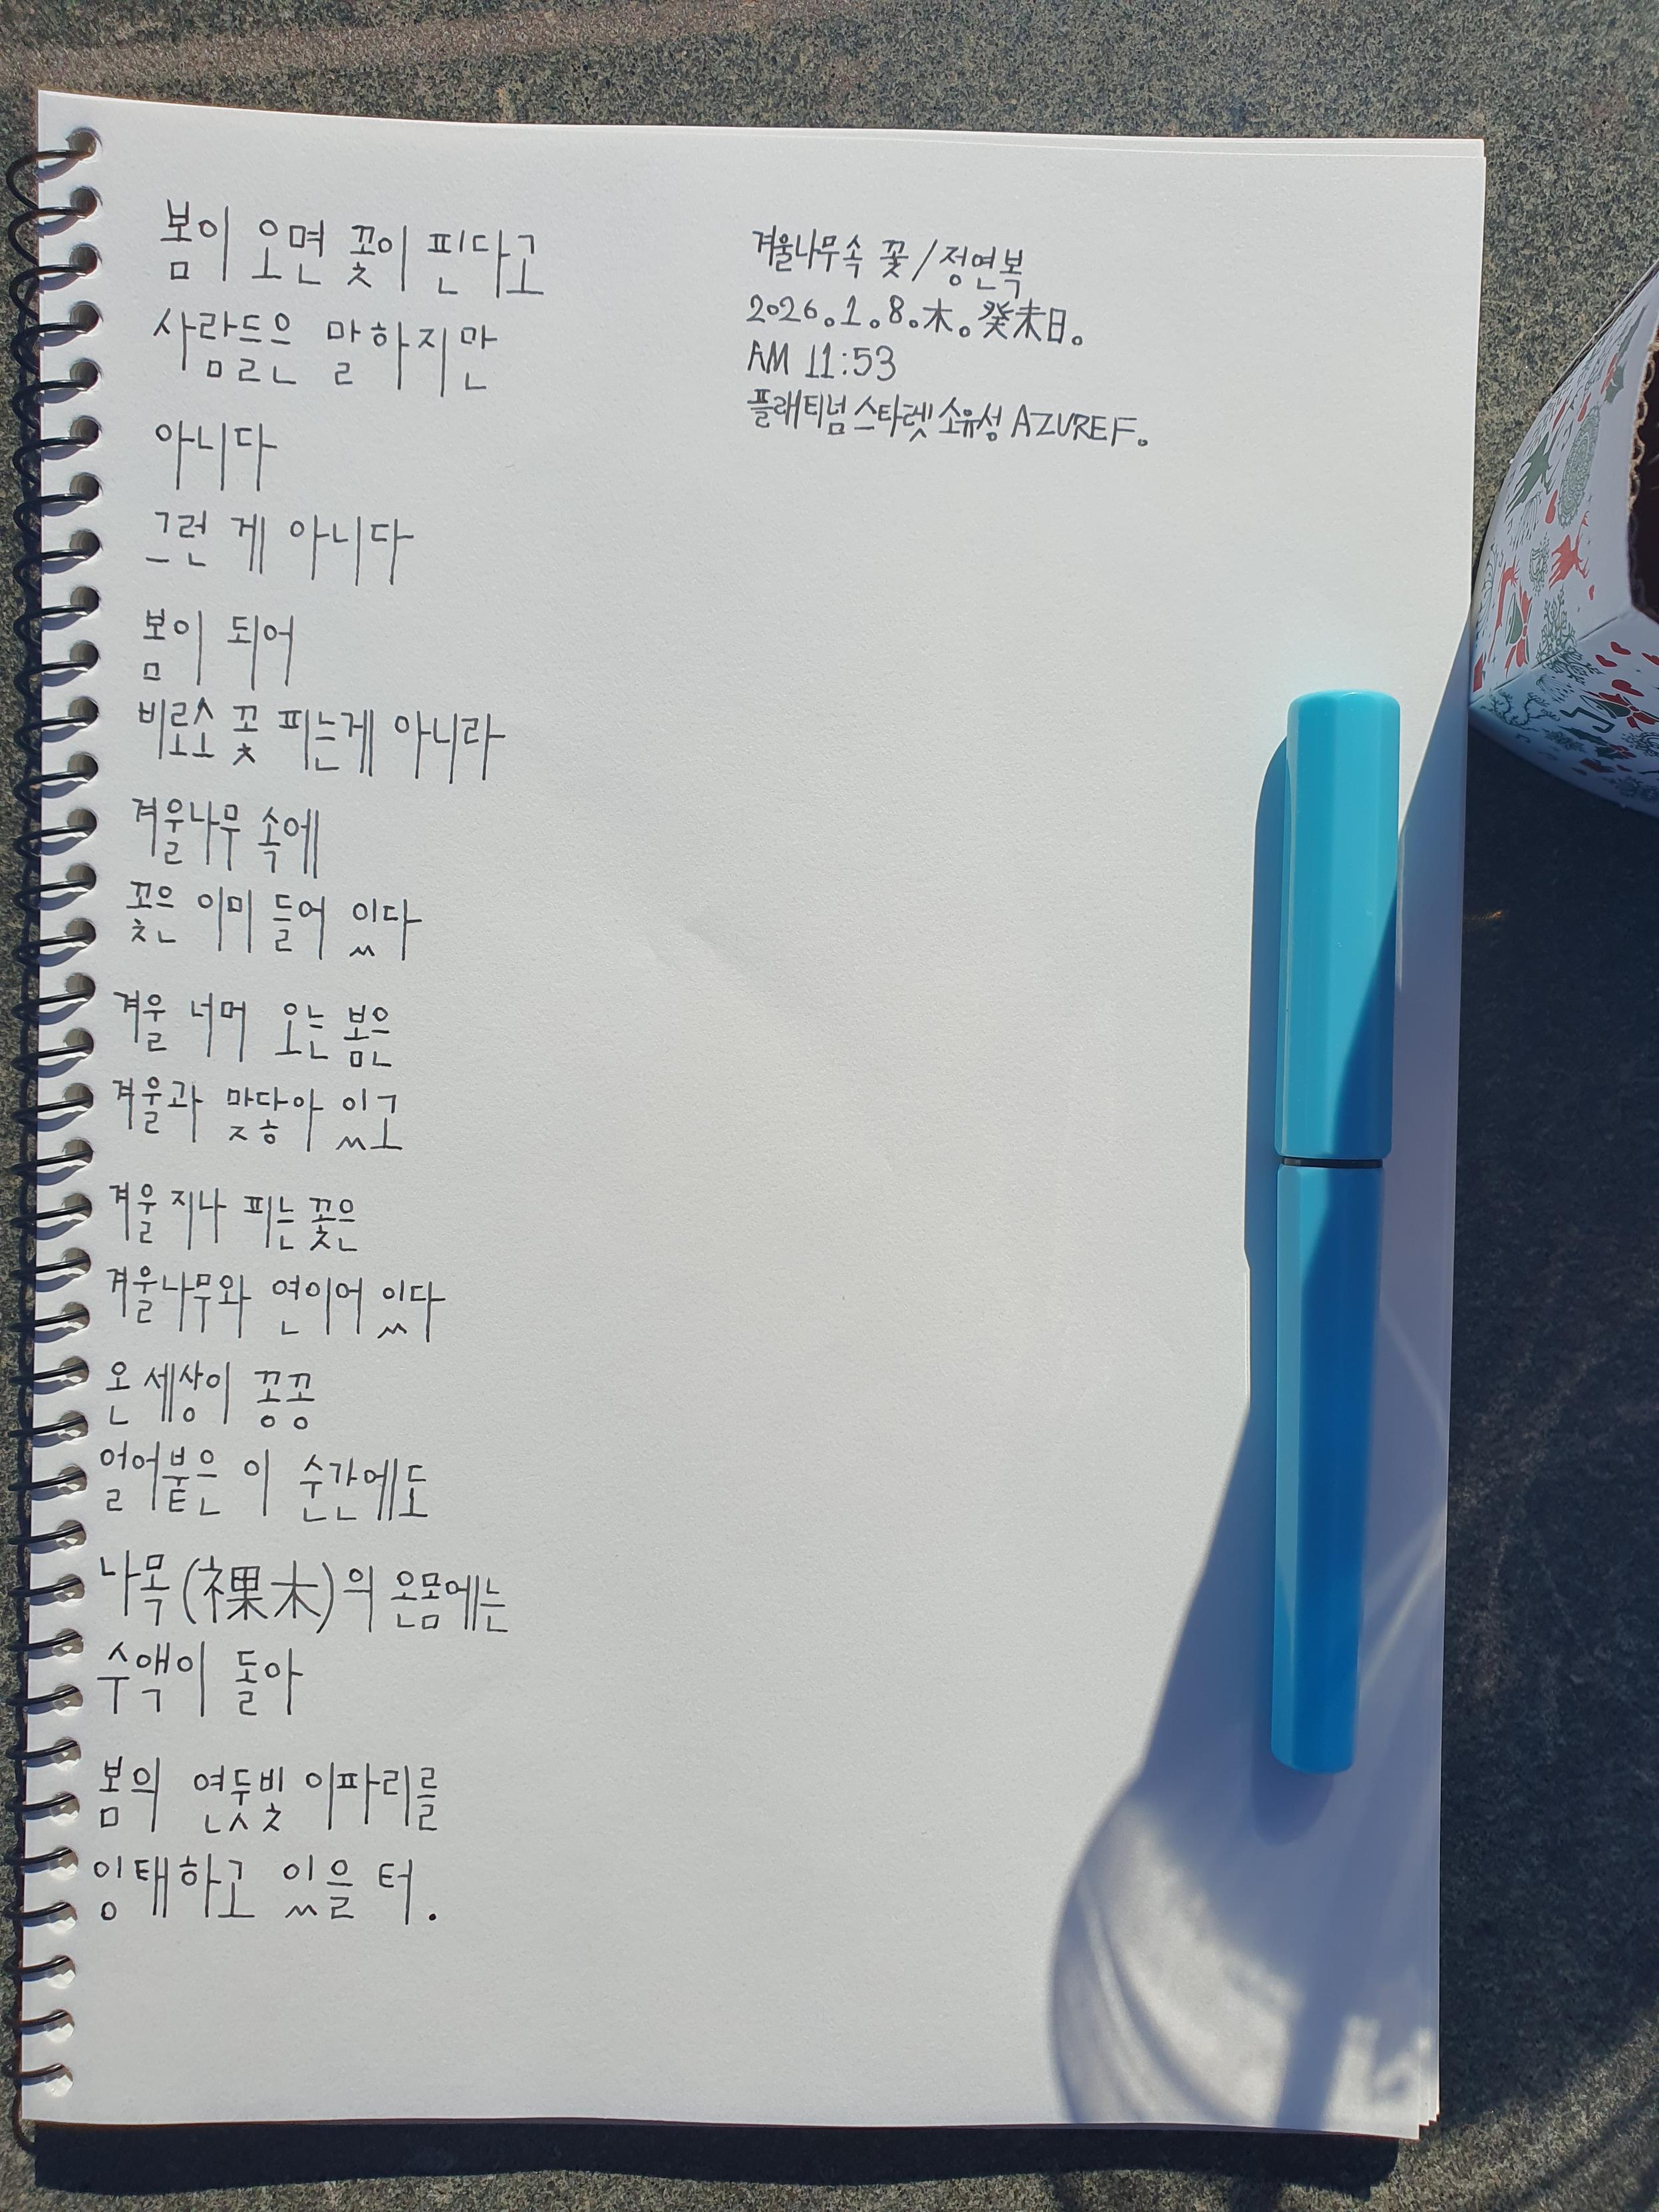 봄이 오면 꽃이 핀다고
사람들은 말하지만
아니다
그런 게 아니다
봄이 되어
비로소 꽃 피는게 아니라
겨울나무 속에
꽃은 이미 들어 있다
겨울 너머 오는 봄은
겨울과 맞닿아 있고
겨울 지나 피는 꽃은
겨울나무와 연이어 있다
온 세상이 꽁꽁
얼어붙은 이 순간에도
나목(裸木)의 온몸에는
수액이 돌아
봄의 연둣빛 이파리를
잉태하고 있을 터.
겨울나무속 꽃/정연복
2026.1.8.木.癸未日.
AM 11:53
플래티넘 스타렛 소유성 AZURE F.